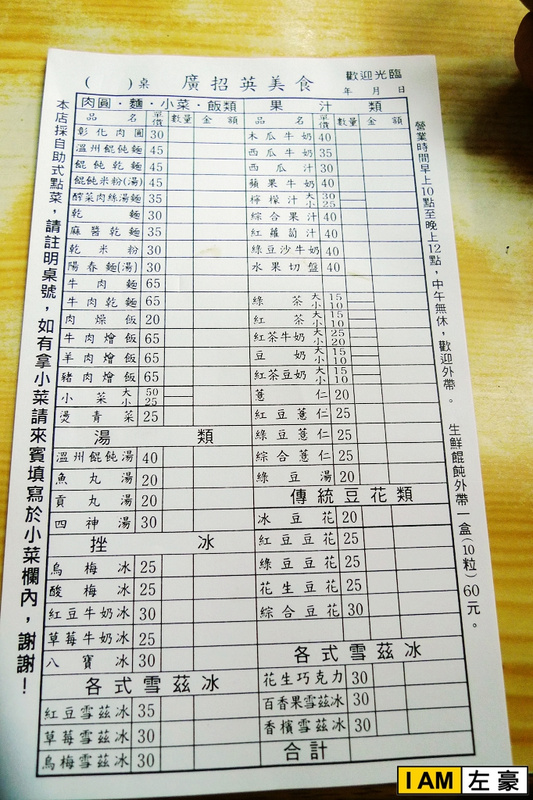 ( )桌 廣招英美食 歡迎光臨
年 月 日
本店採自助式點菜，請註明桌號，如有拿小菜請來賓填寫於小菜欄內，謝謝！
肉圓・麵・小菜・飯類
品名 單價 數量 金額
彰化肉圓 30
溫州餛飩麵 45
餛飩乾麵 45
餛飩米粉(湯) 45
酢菜肉絲湯麵 35
乾麵 30
麻醬乾麵 35
乾米粉 30
陽春麵(湯) 30
牛肉麵 65
牛肉乾麵 65
肉燥飯 20
牛肉燴飯 65
羊肉燴飯 65
豬肉燴飯 65
小菜 大 50 小 25
燙青菜 25
湯類
溫州餛飩湯 40
魚丸湯 20
貢丸湯 20
四神湯 30
挫冰
烏梅冰 25
酸梅冰 25
紅豆牛奶冰 30
草莓牛奶冰 25
八寶冰 30
各式雪茲冰
紅豆雪茲冰 35
草莓雪茲冰 30
烏梅雪茲冰 30
果汁類
品名 單價 數量 金額
木瓜牛奶 40
西瓜牛奶 35
西瓜汁 30
蘋果牛奶 40
檸檬汁 大 30 小 25
綜合果汁 40
紅蘿蔔汁 40
綠豆沙牛奶 40
水果切盤 40
綠茶 大 15 小 10
紅茶 大 15 小 10
紅茶牛奶 大 25 小 20
豆奶 大 15 小 10
紅茶豆奶 大 15 小 10
薏仁 20
紅豆薏仁 25
綠豆薏仁 25
綜合薏仁 25
綠豆湯 20
傳統豆花類
冰豆花 20
紅豆豆花 25
綠豆豆花 25
花生豆花 25
綜合豆花 30
各式雪茲冰
花生巧克力 30
百香果雪茲冰 30
香檳雪茲冰 30
合計
營業時間早上10點至晚上12點，中午無休，歡迎外帶。
生鮮餛飩外帶一盒(10粒)60元。
I AM 左豪